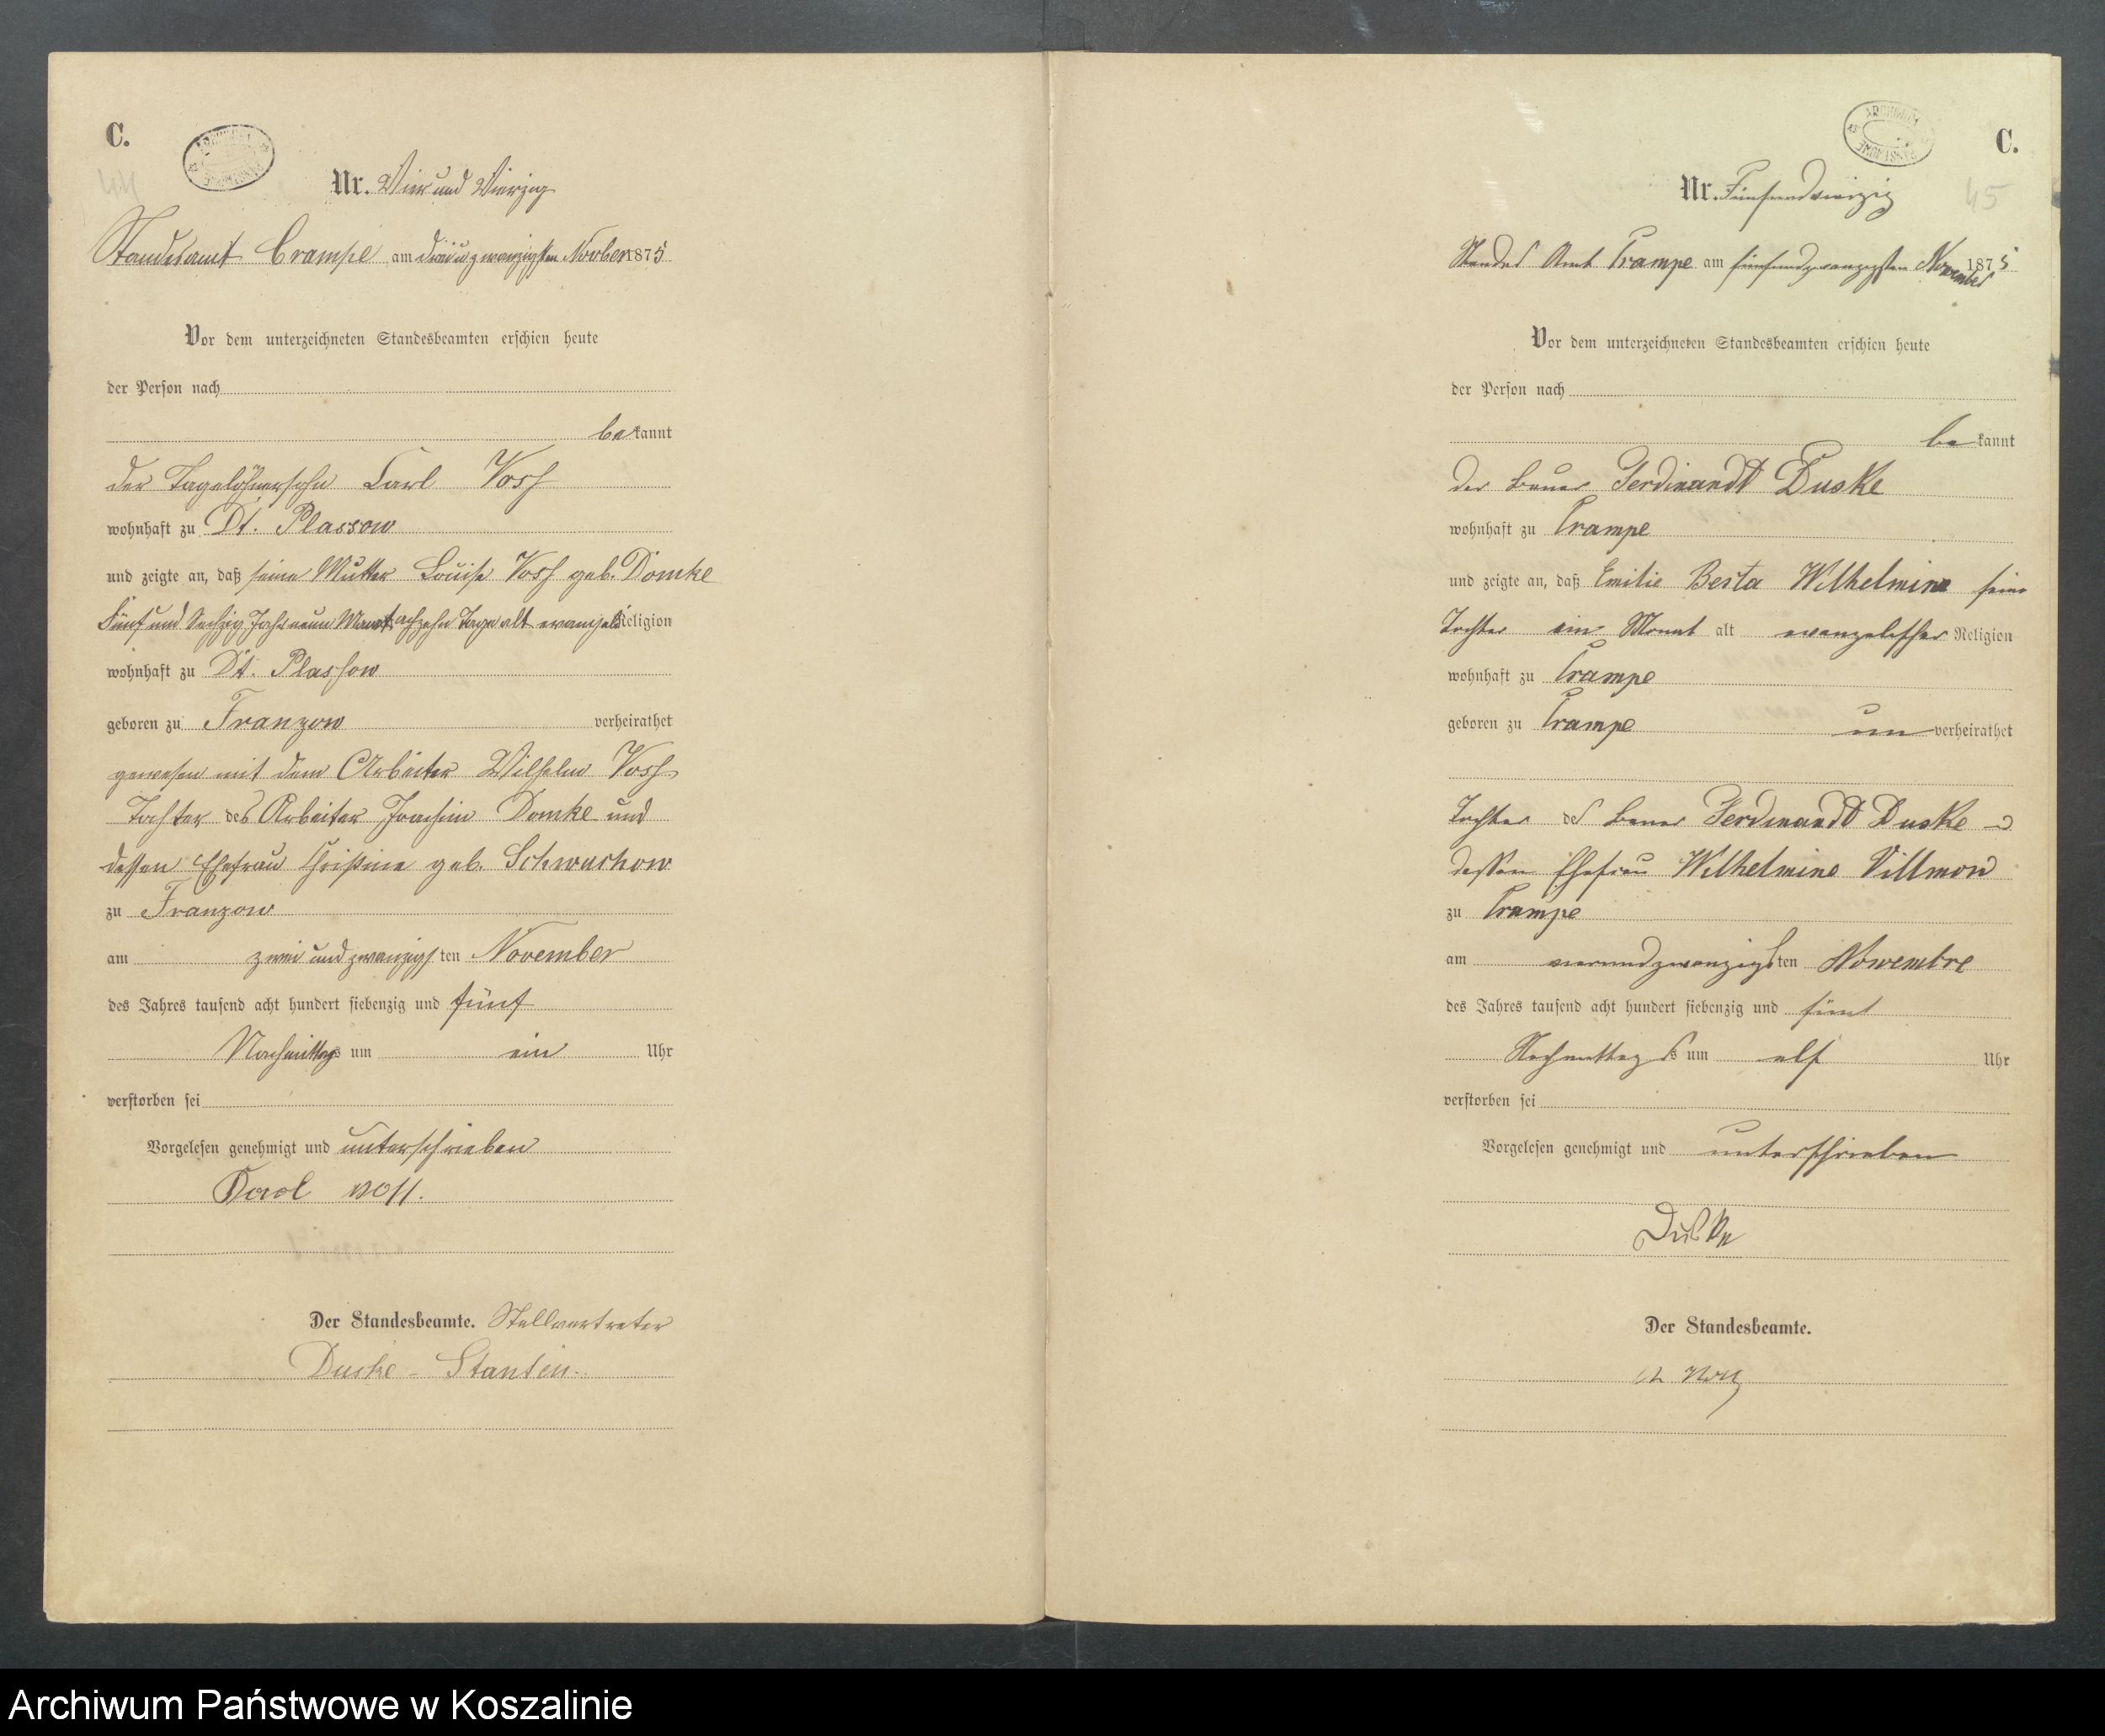 C.
44
Nr. Vier und Vierzig
Standesamt Crampe am drei u zwanzigsten Novber 1875
Vor dem unterzeichneten Standesbeamten erschien heute
der Person nach
bekannt
der Tagelöhnersohn Carl Voss
wohnhaft zu Dt. Plassow
und zeigte an, daß seine Mutter Louise Voss geb. Domke
Fünf und Sechzig Jahr neun Monat achzehn Tage alt evangel. Religion
wohnhaft zu Dt. Plassow
geboren zu Franzow verheirathet
gewesen mit dem Arbeiter Wilhelm Voss
Tochter des Arbeiter Joachim Domke und
dessen Ehefrau Christine geb. Schwuchow
zu Franzow
am zwei und zwanzigsten November
des Jahres tausend acht hundert siebenzig und fünf
Nachmittags um ein Uhr
verstorben sei
Vorgelesen genehmigt und unterschrieben
Karl voss.
Der Standesbeamte. Stellvertreter
Duske - Stantin.
C.
45
Nr. Fünfundvierzig
Standes Amt Crampe am fünfundzwanzigsten November 1875
Vor dem unterzeichneten Standesbeamten erschien heute
der Person nach
bekannt
der Bauer Ferdinandt Duske
wohnhaft zu Crampe
und zeigte an, daß Emilie Berta Wilhelmine seine
Tochter ein Monat alt evangelischer Religion
wohnhaft zu Crampe
geboren zu Crampe unverheirathet
Tochter des Bauer Ferdinandt Duske u
dessen Ehefrau Wilhelmine Villmow
zu Crampe
am vierundzwanzigsten Nowembre
des Jahres tausend acht hundert siebenzig und fünf
Nachmittags um elf Uhr
verstorben sei
Vorgelesen genehmigt und unterschrieben
Duske
Der Standesbeamte.
Archiwum Państwowe w Koszalinie